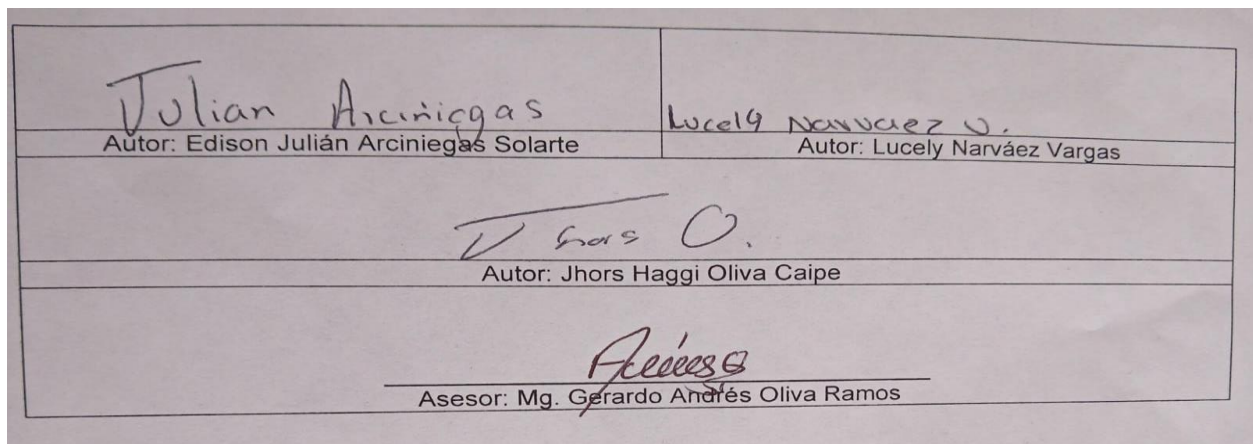 Julian Arciniegas
Autor: Edison Julián Arciniegas Solarte
Lucely Narvaez V.
Autor: Lucely Narváez Vargas
Jhors O.
Autor: Jhors Haggi Oliva Caipe
Asesor: Mg. Gerardo Andrés Oliva Ramos